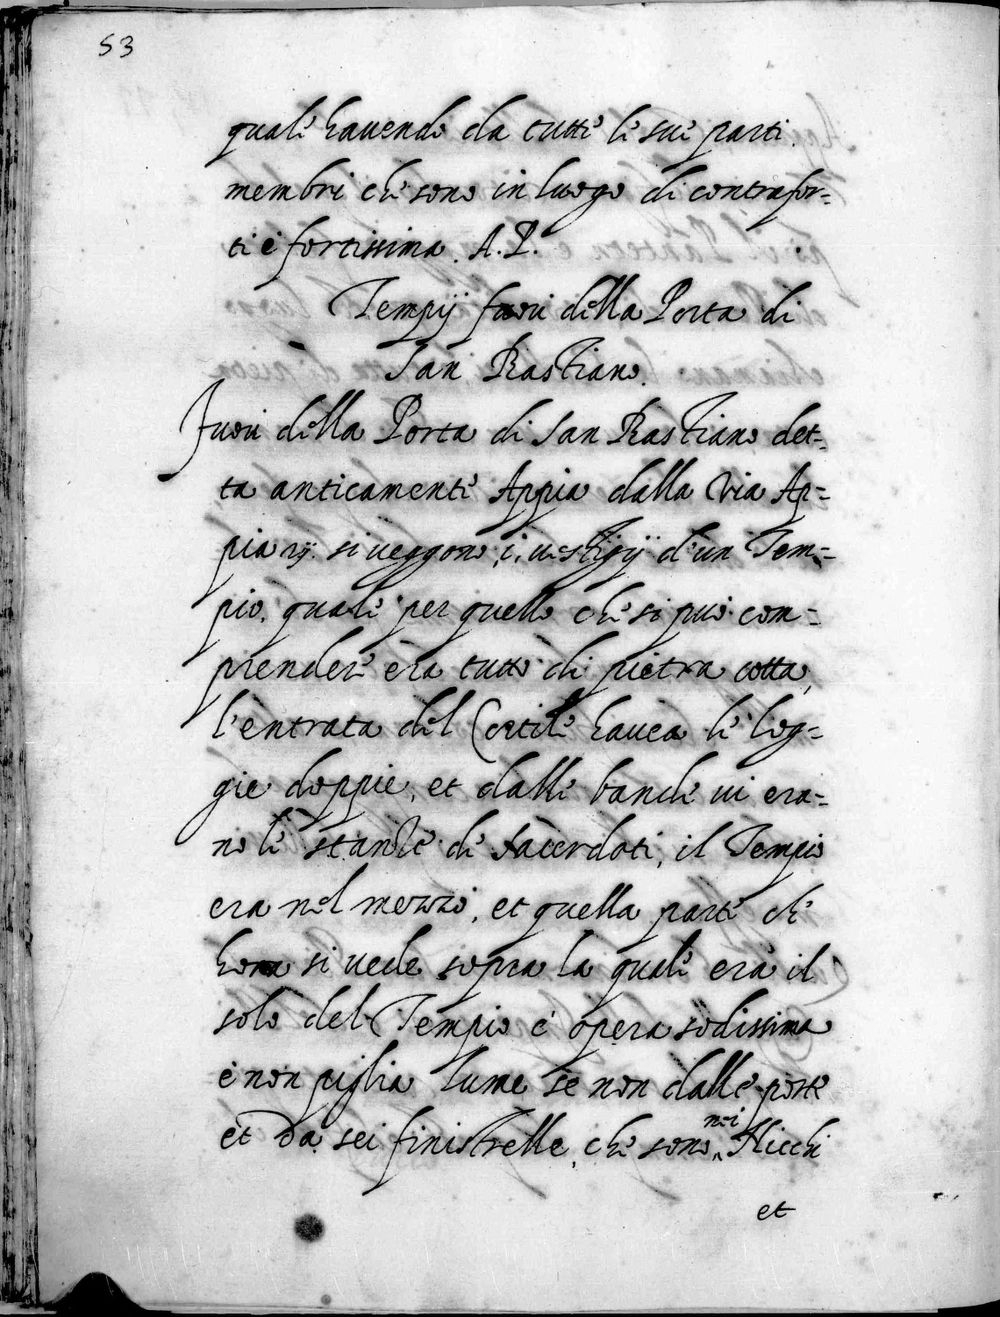 53
quale hauendo da tutte le sue parti
membri che sono in luogo di contrafor-
ti è fortissima. A.P.
Tempij fuori della Porta di
San Bastiano.
Fuori della Porta di San Bastiano det-
ta anticamente Appia dalla Via Ap-
pia si ueggono i uestigij d'un Tem-
pio, quale per quello che si può com-
prendere era tutto di pietra cotta,
l'entrata del Cortile hauea le log-
gie doppie, et dalle bande ui era-
no le stanze de sacerdoti, il Tempio
era nel mezzo, et quella parte che
hora si uede sopra la quale era il
solo del Tempio è opera sodissima
e non piglia lume se non dalle porte
et da sei finistrelle, che sono nei Nicchi
et